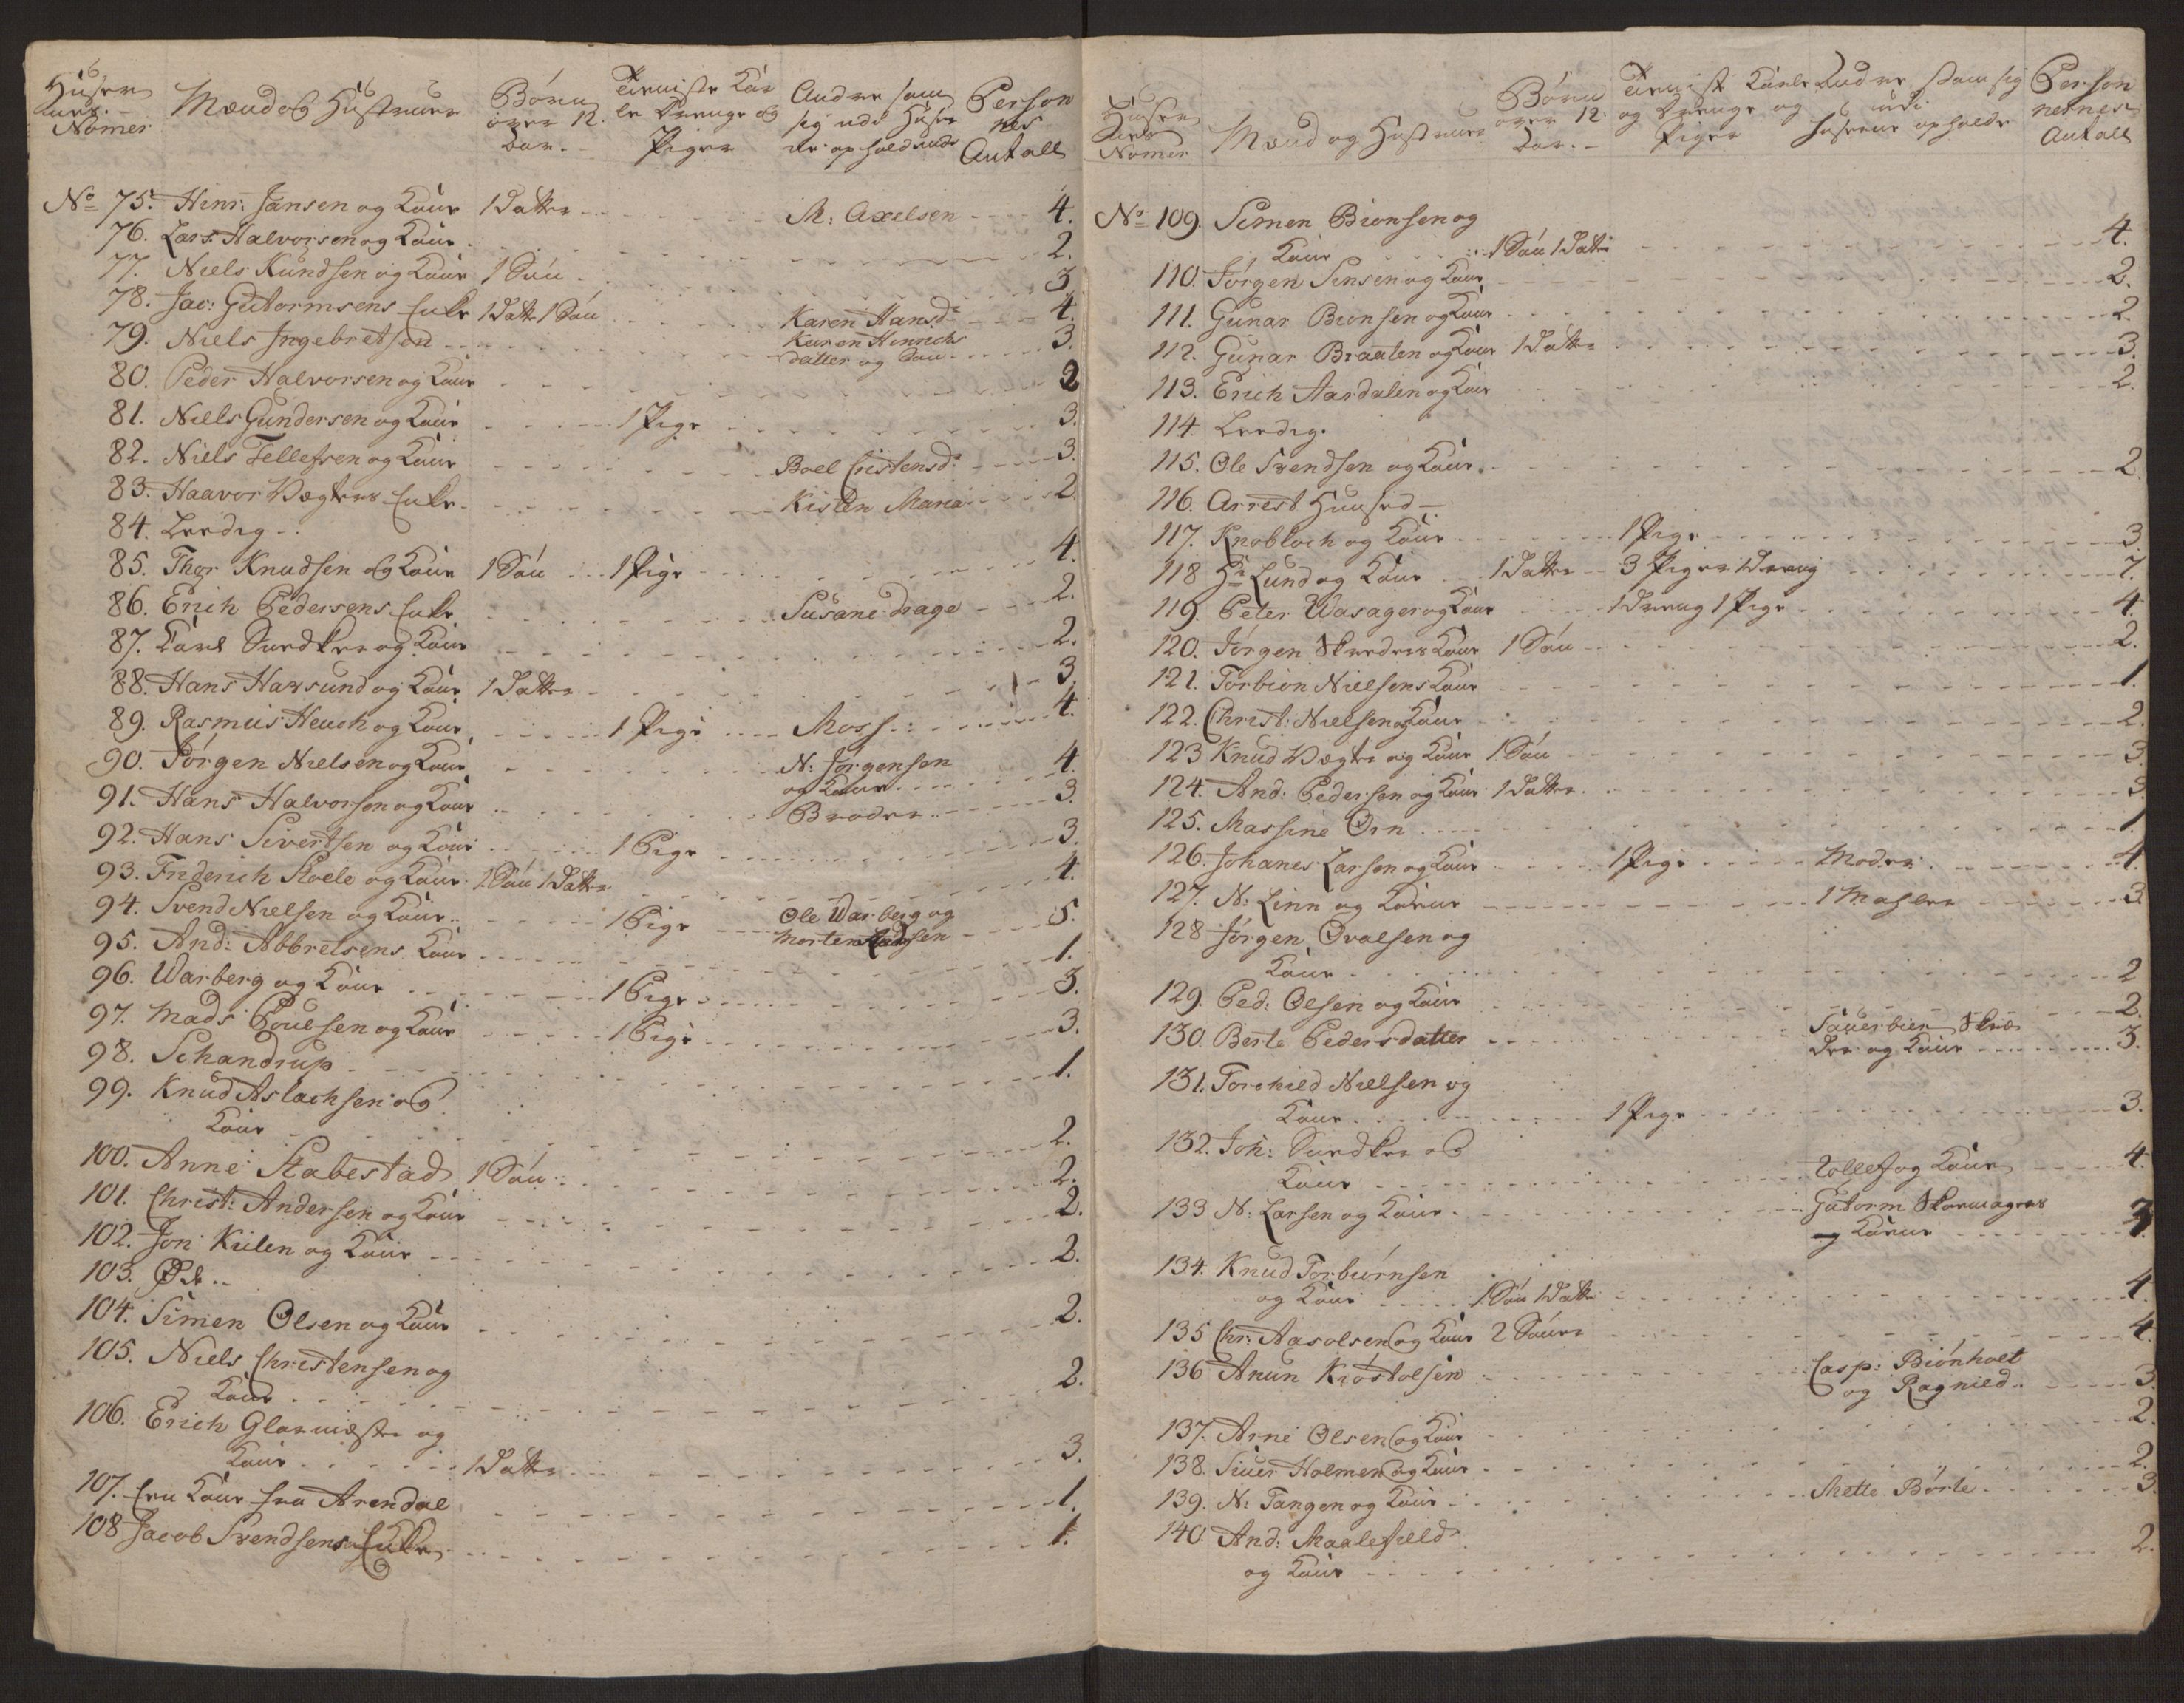 Husernes Nomer
Mænd og Hustruer
Børn over 12 Aar.
Tieniste Karle Drenge og Piger
Andre som sig udi Huserne opholdende
Personnes Antall
No 75. Hinr: Jansen og Kone 1 Datter M: Axelsen 4.
76. Lars Halvorsen og Kone 2.
77. Niels Kundsen og Kone 1 Søn 3
78. Jac: Gutormsens Enke 1 Datt 1 Søn Karen Hansd 4.
79. Niels Ingebretsen Karen Hinrichs datter og Søn 3.
80. Peder Halvorsen og Kone 2
81. Niels Gundersen og Kone 1 Pige 3.
82. Niels Tellefsen og Kone Boel Cristensd: 3.
83. Haavor Vægters Enke Kisten Maria 2.
84. Leedig
85. Thor Knudsen og Kone 1 Søn 1 Pige 4.
86. Erich Pedersens Enke Susane drage 2.
87. Karl Snedker og Kone 2.
88. Hans Havsund og Kone 1 Datter 3.
89. Rasmus Heuch og Kone 1 Pige Moss: 4.
90. Jørgen Nielsen og Kone N: Jørgensen og Kone 4.
91. Hans Halvorsen og Kone Broder 3.
92. Hans Sivertsen og Kone 1 Pige 3.
93. Friderich Stoele og Kone 1 Søn 1 Datter 4.
94. Svend Nielsen og Kone 1 Pige Ole Warberg og Morten Madsen 5.
95. And: Abbrelsens Kone 1.
96. Warberg og Kone 1 Pige 3.
97. Mads Poulsen og Kone 1 Pige 3.
98. Schandrup 1.
99. Knud Aslachsen og
Kone 2.
100. Anne Stabestad 1 Søn 2.
101. Christ: Andersen og Kone 2.
102. Jon Kielen og Kone 2.
103. Øde
104. Simen Olsen og Kone 2.
105. Niels Christensen og
Kone 2.
106. Erich Glarmæster og
Kone 1 Datter 3
107. Een Kone fra Arendal 1.
108 Jacob Svendsens Enke 1.
Husernes Nomer
Mænd og Hustruer
Børn over 12 Aar.
Tienist Karle og Drenge og Piger
Andre som sig udi Huserne opholde
Personnernes Antall
No 109. Simen Bionsen og
Kone 1 Søn 1 Datter 4.
110. Jørgen Jensen og Kone 2.
111. Gunar Bionsen og Kone 2.
112. Gunar Braalen og Kone 1 Datter 3.
113. Erich Aardalen og Kone 2.
114. Leedig.
115. Ole Svendsen og Kone 2
116. Arrest Huused
117. Knobloch og Kone 1 Pige 3
118 Hr Lund og Kone 1 Datter 3 Piger 1 Dreng 7.
119. Peter Wasager og Kone 1 Dreng 1 Pige 4.
120. Jørgen Skreders Kone 1 Søn 2.
121. Torbion Nielsens Kone 1.
122. Christ: Nielsen og Kone 2.
123 Knud Vægter og Kone 1 Søn 3
124. And: Pedersen og Kone 1 Datter 3.
125. Massine Orn 1.
126. Johanes Larsen og Kone 1 Pige Moder 4.
127. N: Linn og Kone 1 Mahler 3
128 Jørgen Ovalsen og
Kone 2
129. Ped: Olsen og Kone 2.
130. Berte Pedersdatter Sauerbier Skræder og Kone 3.
131. Torchild Nielsen og
Kone 1 Pige 3.
132. Joh: Snedker og
Kone Tollef og Kone 4.
133 N: Larsen og Kone Gutorm Skomagers og Kone
134. Knud Torbiørnsen
og Kone 1 Søn 1 Datter 4
135 Chr: Aasolsen og Kone 2 Sønner 4.
136 Anun Kiøstolsen Casp: Biønholt og Ragnild 3
137. Arne Olsen og Kone 2.
138. Siuer Holmen og Kone 2.
139. N: Tangen og Kone Mette Børte 3.
140. And: Maalefield
og Kone 2.